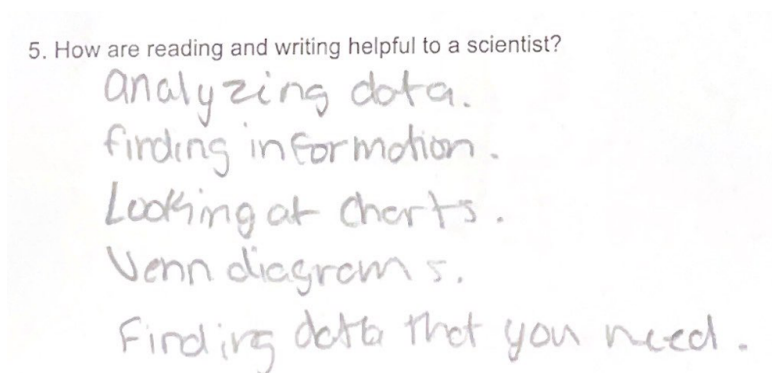 5. How are reading and writing helpful to a scientist?
analyzing data.
finding information.
Looking at charts.
Venn diagrams.
Finding data that you need.